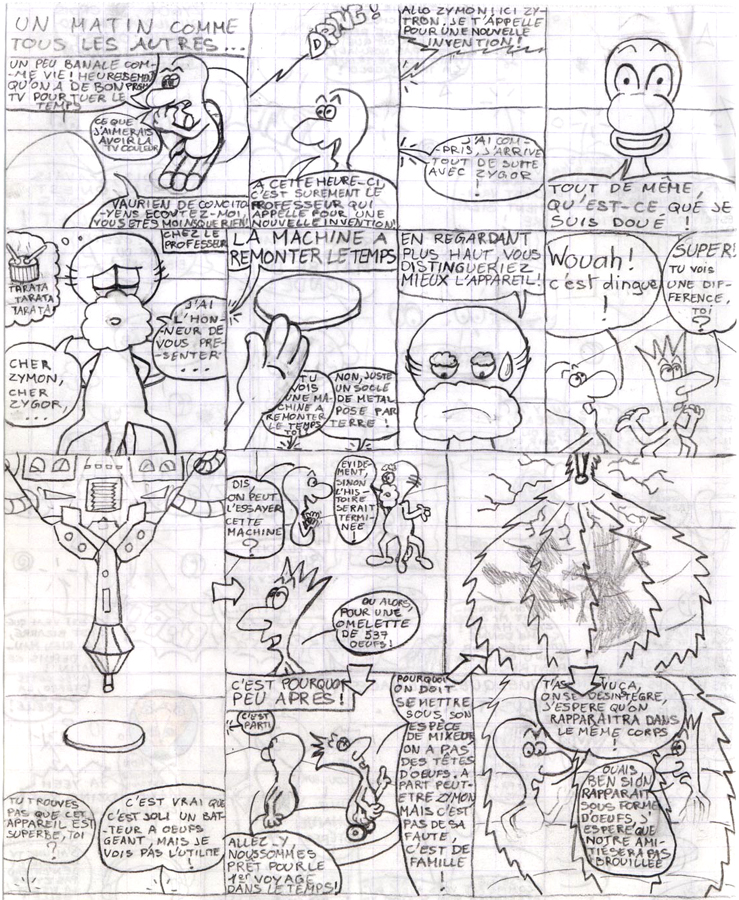 UN MATIN COMME
TOUS LES AUTRES...
UN PEU BANALE COM-
-ME VIE! HEUREUSEMENT
QU'ON A DE BON PROG
TV POUR TUER LE
TEMPS
CE QUE
J'AIMERAIS
AVOIR LA
TV COULEUR
VAURIEN DE CONCITO-
-YENS ECOUTEZ-MOI,
VOUS ETES MOINS QUE RIEN!
DRING!
A CETTE HEURE-CI,
C'EST SUREMENT LE
PROFESSEUR QUI
APPELLE POUR UNE
NOUVELLE INVENTION!
ALLO ZYMON! ICI ZY-
-TRON. JE T'APPELLE
POUR UNE NOUVELLE
INVENTION!
J'AI COM-
-PRIS, J'ARRIVE
TOUT DE SUITE
AVEC ZYGOR
!
TOUT DE MÊME,
QU'EST-CE QUE JE
SUIS DOUÉ !
CHEZ LE
PROFESSEUR
TARATA
TARATA
TARATA!
J'AI
L'HON-
-NEUR DE
VOUS PRE-
-SENTER
...
CHER
ZYMON,
CHER
ZYGOR,
...
LA MACHINE A
REMONTER LE TEMPS
TU
VOIS
UNE MA-
-CHINE A
REMONTER
LE TEMPS
TOI?
NON, JUSTE
UN SOCLE
DE METAL
POSE PAR
TERRE !
EN REGARDANT
PLUS HAUT, VOUS
DISTINGUERIEZ
MIEUX L'APPAREIL!
Wouah!
c'est dingue
!
SUPER!
TU VOIS
UNE DIF-
-FERENCE,
TOI
?
TU TROUVES
PAS QUE CET
APPAREIL EST
SUPERBE, TOI
?
C'EST VRAI QUE
C'EST JOLI UN BAT-
-TEUR A OEUFS
GEANT, MAIS JE
VOIS PAS L'UTILITE
!
DIS,
ON PEUT
L'ESSAYER
CETTE
MACHINE
?
EVIDE-
-MENT,
SINON
L'HIS-
-TOIRE
SERAIT
TERMI-
-NEE
!
OU ALORS,
POUR UNE
OMELETTE
DE 537
OEUFS!
C'EST POURQUOI
PEU APRES!
C'EST
PARTI
ALLEZ-Y,
NOUS SOMMES
PRET POUR LE
1er VOYAGE
DANS LE TEMPS!
POURQUOI
ON DOIT
SE METTRE
SOUS SON
ESPECE
DE MIXEUR
ON A PAS
DES TÊTES
D'OEUFS. A
PART PEUT-
-ETRE ZYMON
MAIS C'EST
PAS DE SA
FAUTE,
C'EST DE
FAMILLE
!
T'AS VU ÇA,
ON SE DESINTEGRE,
J'ESPERE QU'ON
RAPPARAITRA DANS
LE MEME CORPS
!
OUAIS,
BEN SI ON
RAPPARAIT
SOUS FORME
D'OEUFS, J'
ESPERE QUE
NOTRE AMI-
TIE SERA PAS
BROUILLEE